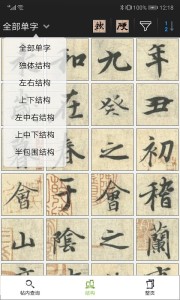 100% 12:18
全部单字
全部单字
独体结构
左右结构
上下结构
左中右结构
上中下结构
半包围结构
和 九 年
在 癸 丑
春 之 初
會 于 會 稽
山 陰 之 蘭
帖内查询
结构
整页